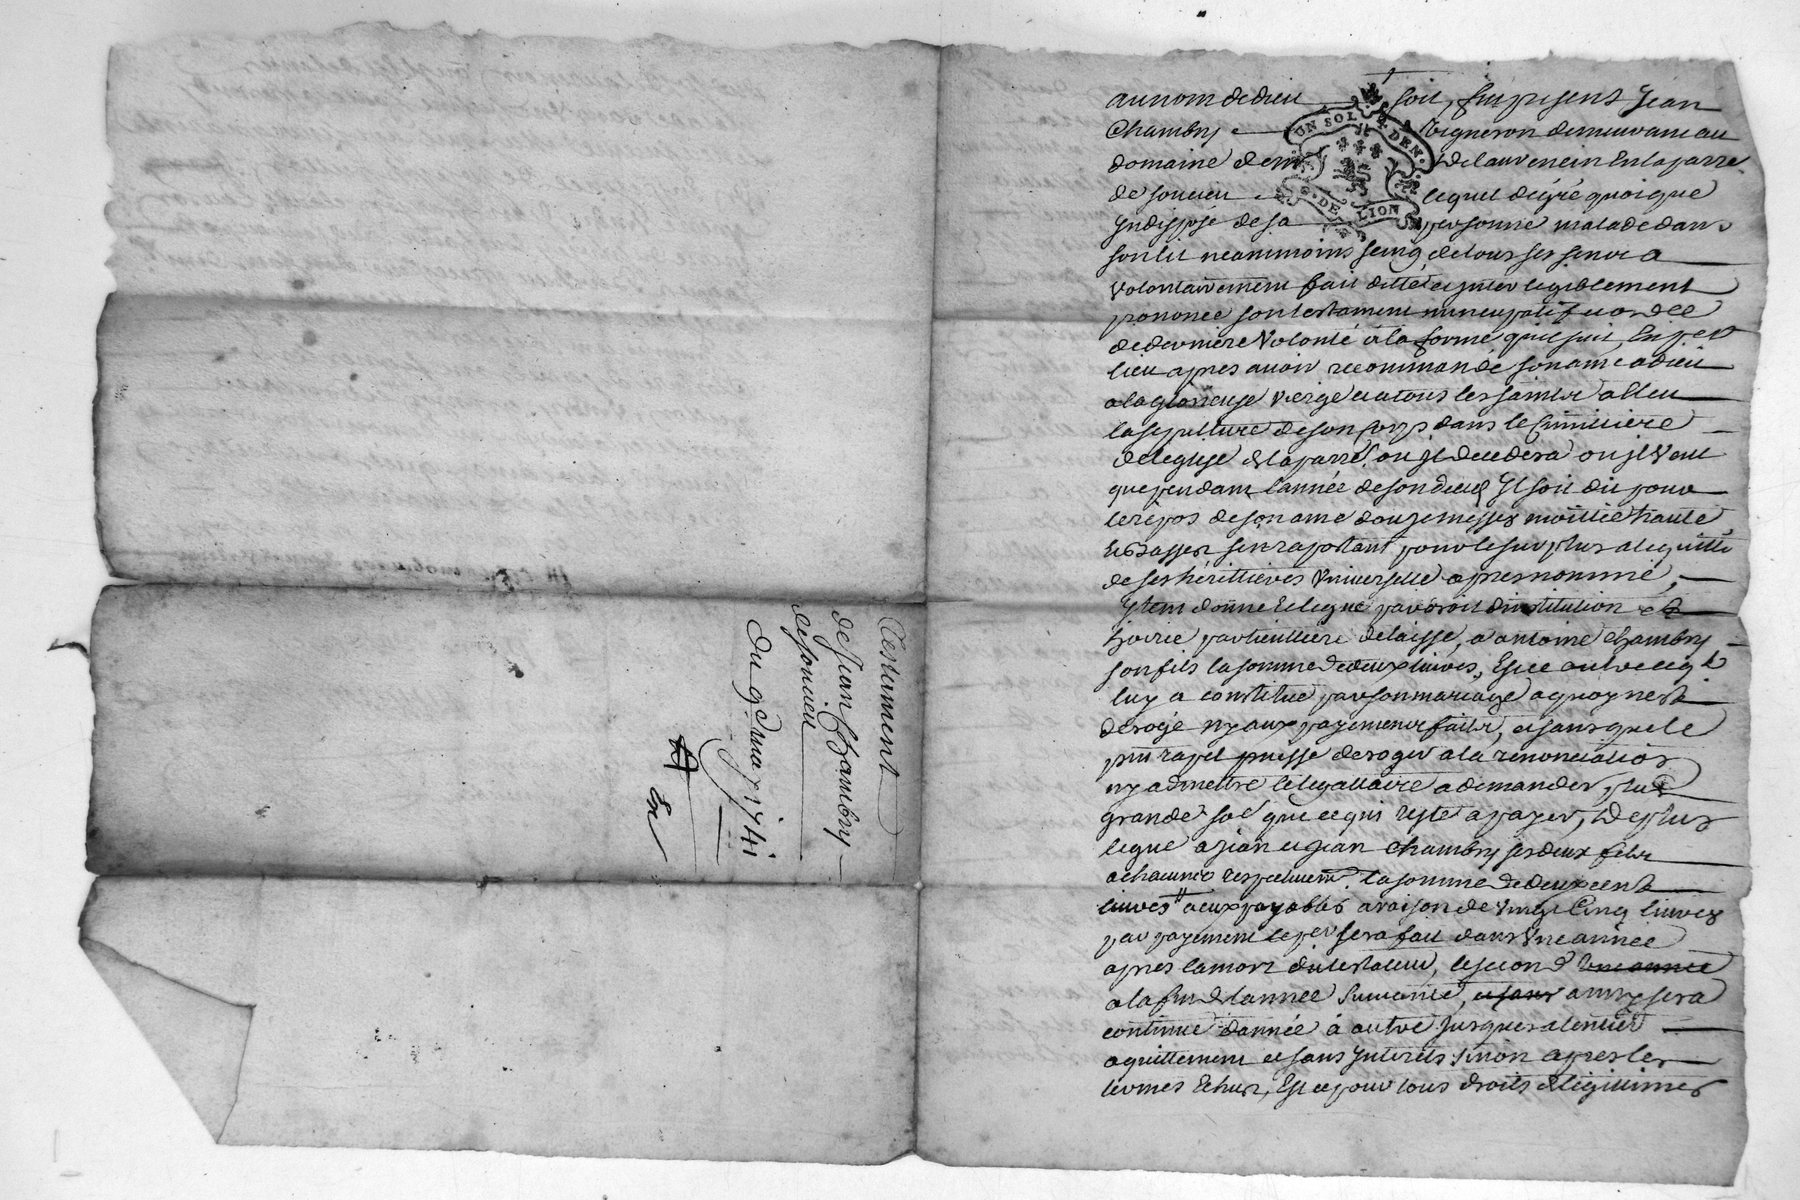 Testament
de Jean Chambry
de soucieu
du 9e may 1741
au nom de dieu soit, fut present Jean
Chambry vigneron demeurant au
domaine de en la parre.
de soucieu lequel de gré quoique
Indispose de sa personne malade dans
son lit neanmoins de tous ses sens a
volontairement fait dicté legiblement
prononcé son testament nuncupatif
de derniere volonté a la forme quil suit,
lieu apres avoir recommandé son ame a dieu
a la glorieuse vierge et a tous les saints a elleu
la sepulture de son corps dans le Cimittiere
de leglise de la parre. ou jl decedera ou jl veut
que pendant lannée de son deced Il soit dit pour
le repos de son ame douze messes moittié haute
et Basses sen raportant pour le surplus a lequitté
de ses herittieres universelle apres nommé,
Item donne et legue par droit dinstitution et
hoirie particulliere delaisse, a antoine chambry
son fils la somme de deux livres, outre ce q
luy a constitue par son mariage a quoy nest
derogé ny aux payements faits, et sans que le
pnt puisse deroger a la renonciation
ny admettre le legattaire a demander plus
grande so que ce qui reste a payer, De plus
legue a jean et jean chambry ses deux fils
a chacuns respectivemt. la somme de deux cent
livres a eux payables a raison de vingt Cinq livres
par payement le per sera fait dans une année
apres la mort du testateur, le second une année
a la fin de lannee suivante, et sans ainsy sera
continué dannée à autre jusques a lentier
aquittement et sans Interets sinon apres les
termes echus, Et ce pour tous droits de legitimes
UN SOL 4. DEN.
G. DE LION